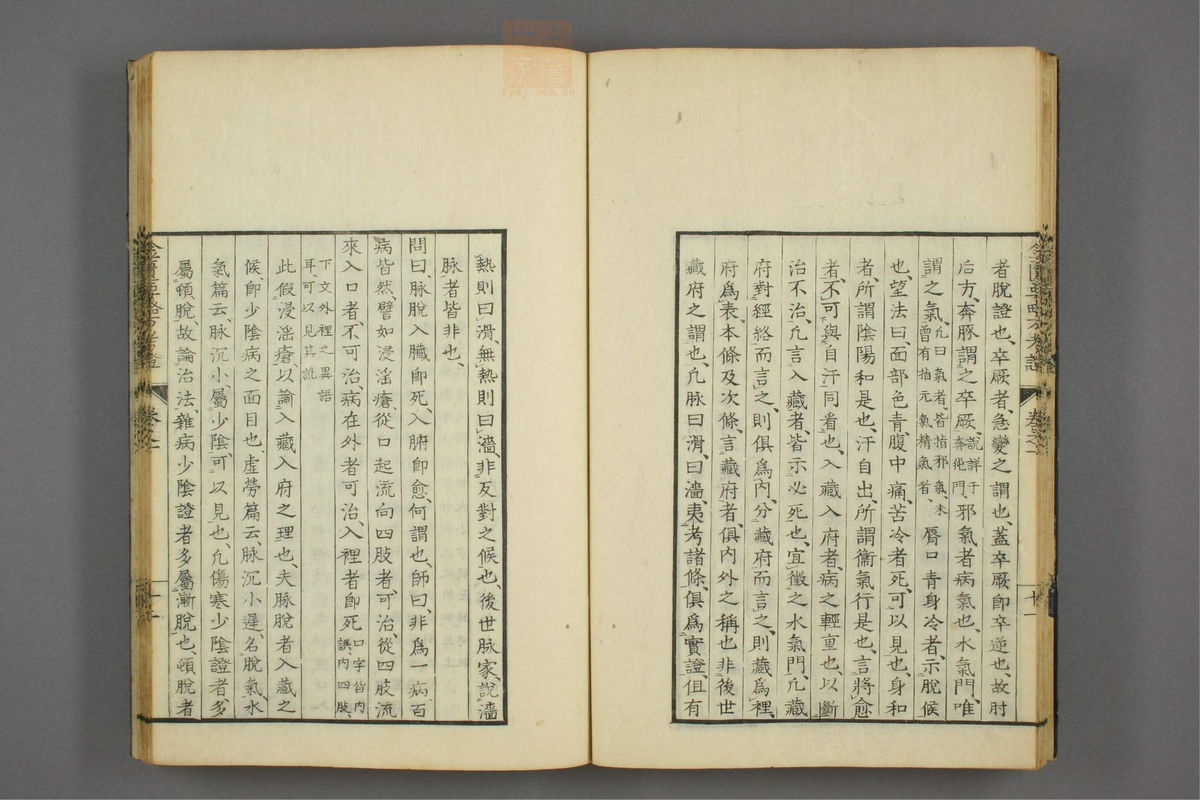 者脫證也、卒厥者、急變之謂也、蓋卒厥卽卒逆也、故肘
后方、奔豚謂之卒厥、說詳于奔㹠門、邪氣者病氣也、水氣門、唯
謂之氣、凡曰氣者、皆指邪氣、未曾有指元氣精氣者、脣口青身冷者、示脫候
也、望法曰、面部色青、腹中痛、苦冷者死、可以見也、身和
者、所謂陰陽和是也、汗自出、所謂衞氣行是也、言將愈
者、不可與自汗同看也、入藏入府者、病之輕重也、以斷
治不治、凡言入藏者、皆示必死也、宜徵之水氣門、凡藏
府對經絡而言之、則俱爲內、分藏府而言之、則藏爲裡、
府爲表、本條及次條、言藏府者、俱內外之稱也、非後世
藏府之謂也、凡脉曰滑、曰濇、夷考諸條、俱爲實證、但有
熱則曰滑、無熱則曰濇、非反對之候也、後世脉家說濇
脉者皆非也、
問曰、脉脫入臟卽死、入腑卽愈、何謂也、師曰、非爲一病、百
病皆然、譬如浸淫瘡、從口起流向四肢者、可治、從四肢流
來入口者、不可治、病在外者可治、入裡者卽死、口字皆內誤、內四肢、
下文外裡之異語耳、可以見其訛
此假浸淫瘡、以諭入藏入府之理也、夫脉脫者入藏之
候、卽少陰病之面目也、虛勞篇云、脉沉小遲、名脫氣、水
氣篇云、脉沉小、屬少陰、可以見也、凡傷寒少陰證者、多
屬頓脫、故論治法、雜病少陰證者多屬漸脫也、頓脫者
金匱要略方考證
卷之一
十一